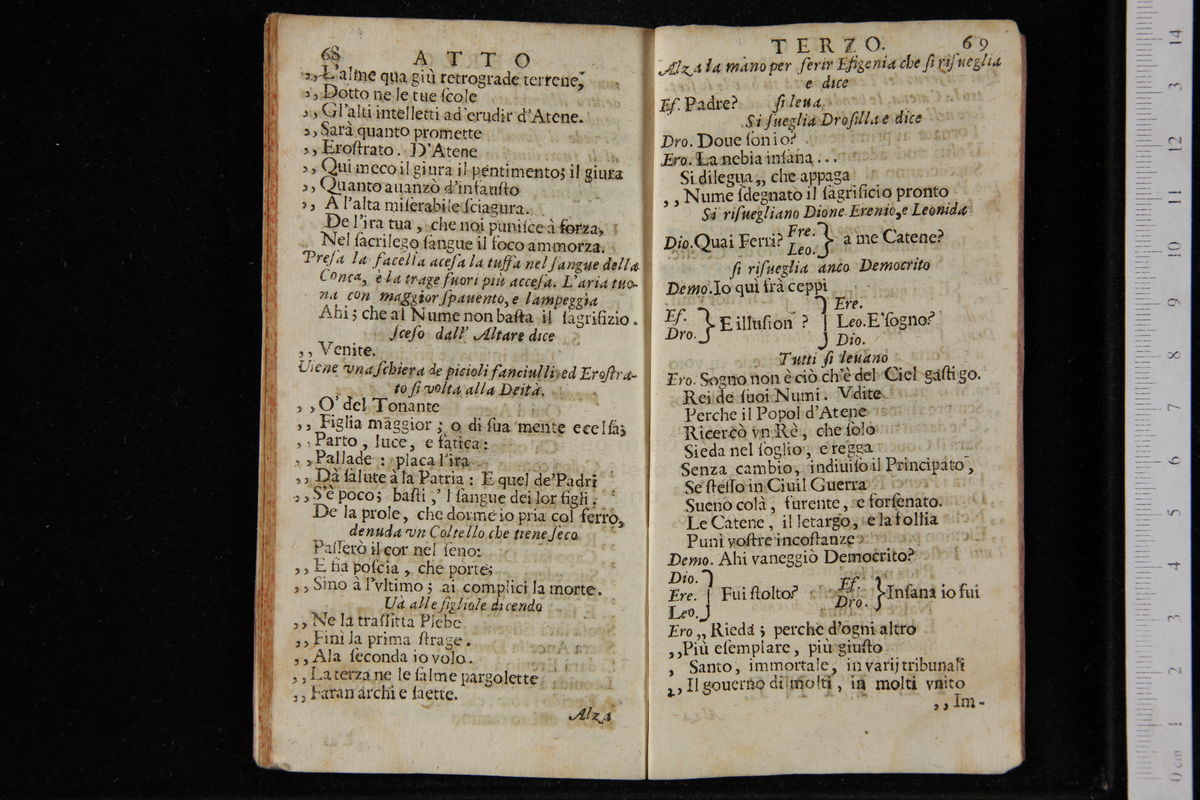 68 ATTO
,,L'alme qua giù retrograde terrene,
,,Dotto ne le tue ſcole
,,Gl'alti intelletti ad erudir d'Atene.
,,Sarà quanto promette
,,Eroſtrato. D'Atene
,,Qui meco il giura il pentimento; il giura
,,Quanto auanzò d'infauſto
,, A l'alta miſerabile ſciagura.
De l'ira tua, che noi puniſce à forza,
Nel ſacrilego ſangue il foco ammorza.
Preſa la facella acceſa la tuffa nel ſangue della
Conca, e la trage fuori più acceſa. L'aria tuo-
na con maggior ſpauento, e lampeggia
Ahi; che al Nume non baſta il ſagrifizio.
ſceſo dall' Altare dice
,, Venite.
Viene vna ſchiera de picioli fanciulli, ed Eroſtra-
to ſi volta alla Deità.
,,O' del Tonante
,, Figlia maggior; o di ſua mente ecelſa;
,,Parto, luce, e fatica:
,,Pallade: placa l'ira
,,Dà ſalute à la Patria: E quel de'Padri
,,S'è poco; baſti,'l ſangue dei lor figli.
De la prole, che dorme io pria col ferro,
denuda vn Coltello che tiene ſeco
Paſſerò il cor nel ſeno:
,,E fia poſcia, che porte;
,,Sino à l'vltimo; ai complici la morte.
Và alle figliole dicendo
,,Ne la traffitta Plebe
,,Finì la prima ſtrage.
,,A la ſeconda io volo.
,,La terza ne le ſalme pargolette
,,Faran archi e ſaette.
Alza
TERZO. 69
Alza la mano per ferir Efigenia che ſi riſueglia
e dice
Ef. Padre? ſi leua
Si ſueglia Droſilla e dice
Dro. Doue ſon io?
Ero. La nebia inſana...
Si dilegua,, che appaga
,,Nume ſdegnato il ſagrificio pronto
Si riſuegliano Dione Erenio, e Leonida
Dio. Quai Ferri? Ere. Leo.} a me Catene?
ſi riſueglia anco Democrito
Demo. Io qui frà ceppi
Ef. Dro.} E illuſion? ] Ere. Leo. E'ſogno? Dio.
Tutti ſi leuano
Ero. Sogno non è ciò ch'è del Ciel gaſtigo.
Rei de ſuoi Numi. Vdite
Perche il Popol d'Atene
Ricercò vn Rè, che ſolo
Sieda nel ſoglio, e regga
Senza cambio, indiuiſo il Principato,
Se ſteſſo in Ciuil Guerra
Sueno colà, furente, e forſenato.
Le Catene, il letargo, e la follia
Punì voſtre incoſtanze
Demo. Ahi vaneggiò Democrito?
Dio. Ere. Leo.] Fui ſtolto? Ef. Dro.} Inſana io fui
Ero,, Rieda; perche d'ogni altro
,,Più eſemplare, più giuſto
, Santo, immortale, in varij tribunali
,,Il gouerno di molti, in molti vnito
,,Im-
14
13
12
11
10
9
8
7
6
5
4
3
2
1
0 cm